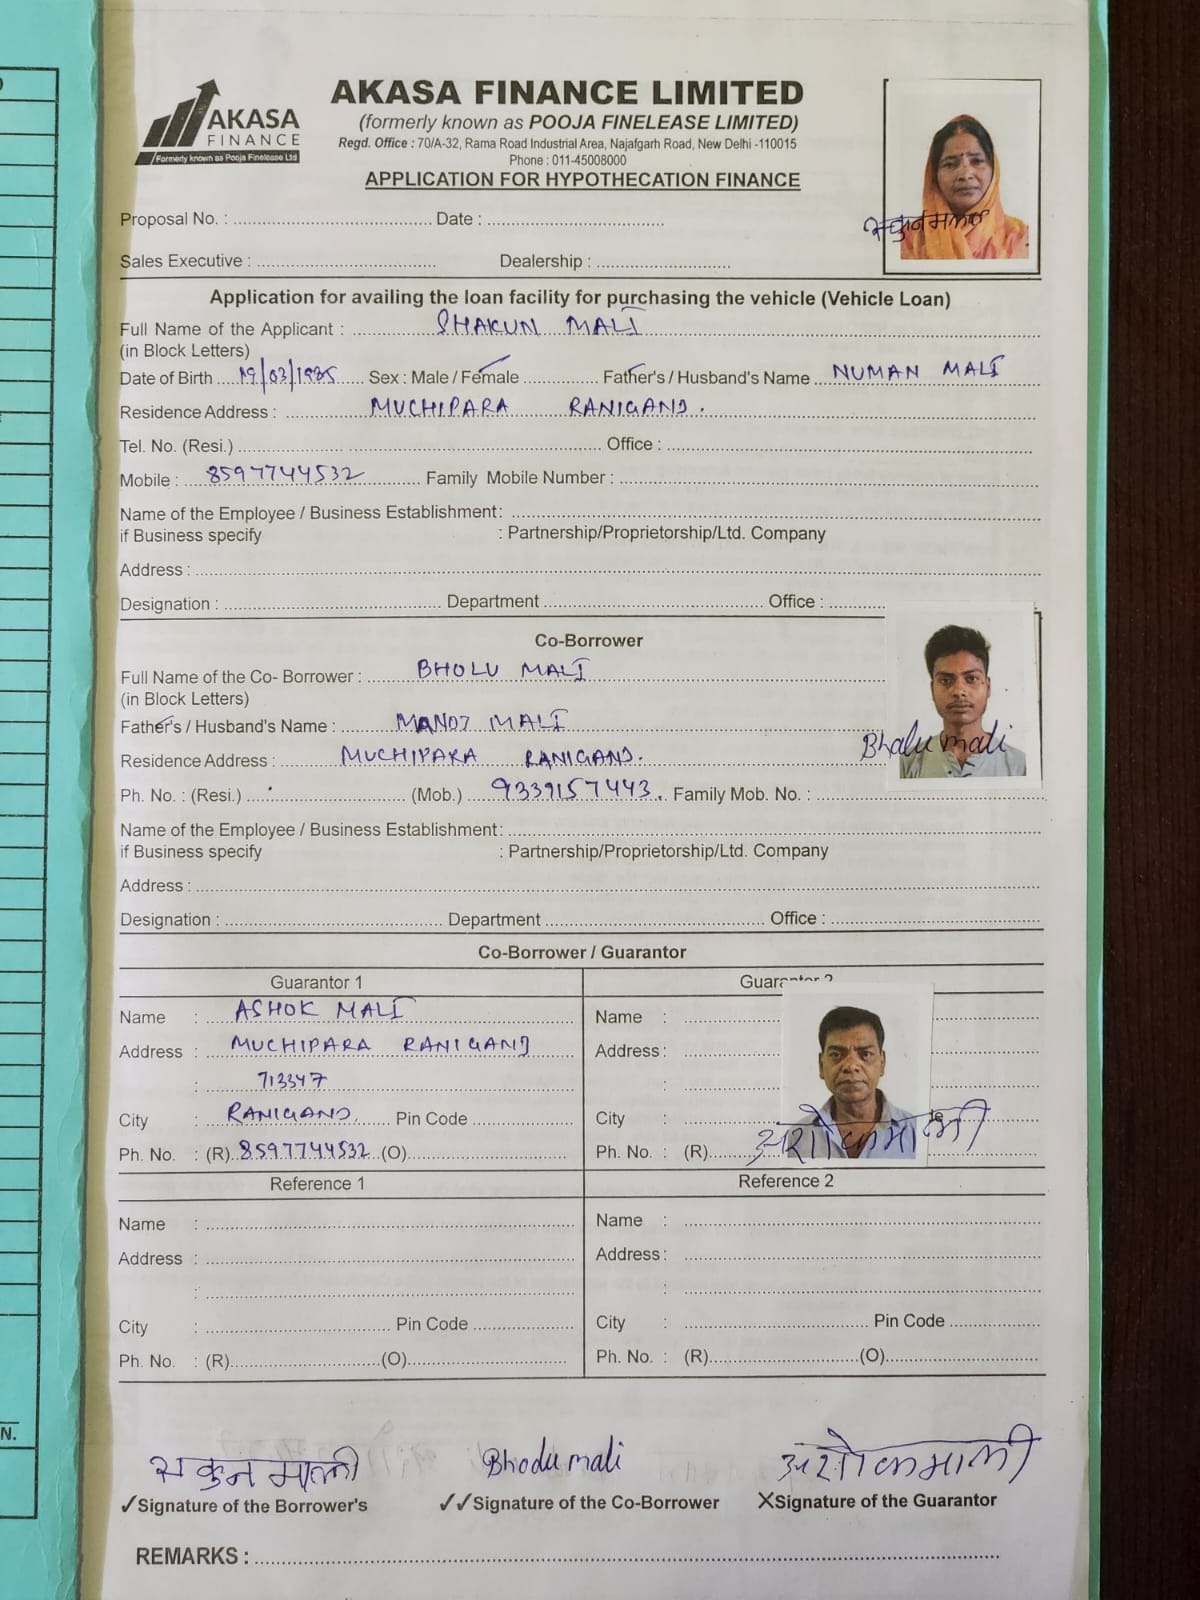 AKASA
FINANCE
Formerly known as Pooja Finelease Ltd
AKASA FINANCE LIMITED
(formerly known as POOJA FINELEASE LIMITED)
Regd. Office : 70/A-32, Rama Road Industrial Area, Najafgarh Road, New Delhi -110015
Phone : 011-45008000
APPLICATION FOR HYPOTHECATION FINANCE
Proposal No. : Date :
Sales Executive : Dealership :
Application for availing the loan facility for purchasing the vehicle (Vehicle Loan)
Full Name of the Applicant : SHAKUN MALI
(in Block Letters)
Date of Birth 19/03/1985 Sex : Male / Female Father's / Husband's Name NUMAN MALI
Residence Address : MUCHIPARA RANIGANJ.
Tel. No. (Resi.) Office :
Mobile : 8597744532 Family Mobile Number :
Name of the Employee / Business Establishment:
if Business specify : Partnership/Proprietorship/Ltd. Company
Address :
Designation : Department Office :
Co-Borrower
Full Name of the Co- Borrower : BHOLU MALI
(in Block Letters)
Father's / Husband's Name : MANOJ MALI
Residence Address : MUCHIPARA RANIGANJ.
Bholu mali
Ph. No. : (Resi.) (Mob.) 9339157443. Family Mob. No. :
Name of the Employee / Business Establishment:
if Business specify : Partnership/Proprietorship/Ltd. Company
Address :
Designation : Department Office :
Co-Borrower / Guarantor
Guarantor 1
Name : ASHOK MALI Name :
Address : MUCHIPARA RANIGANJ Address :
: 713347 :
City : RANIGANJ, Pin Code City :
Ph. No. : (R) 8597744532 (O) Ph. No. : (R)
अशोक माली
Reference 1 Reference 2
Name : Name :
Address : Address :
: :
City : Pin Code City : Pin Code
Ph. No. : (R) (O) Ph. No. : (R) (O)
सकुन माली Bholu mali अशोक माली
✓Signature of the Borrower's ✓✓Signature of the Co-Borrower XSignature of the Guarantor
REMARKS :
N.